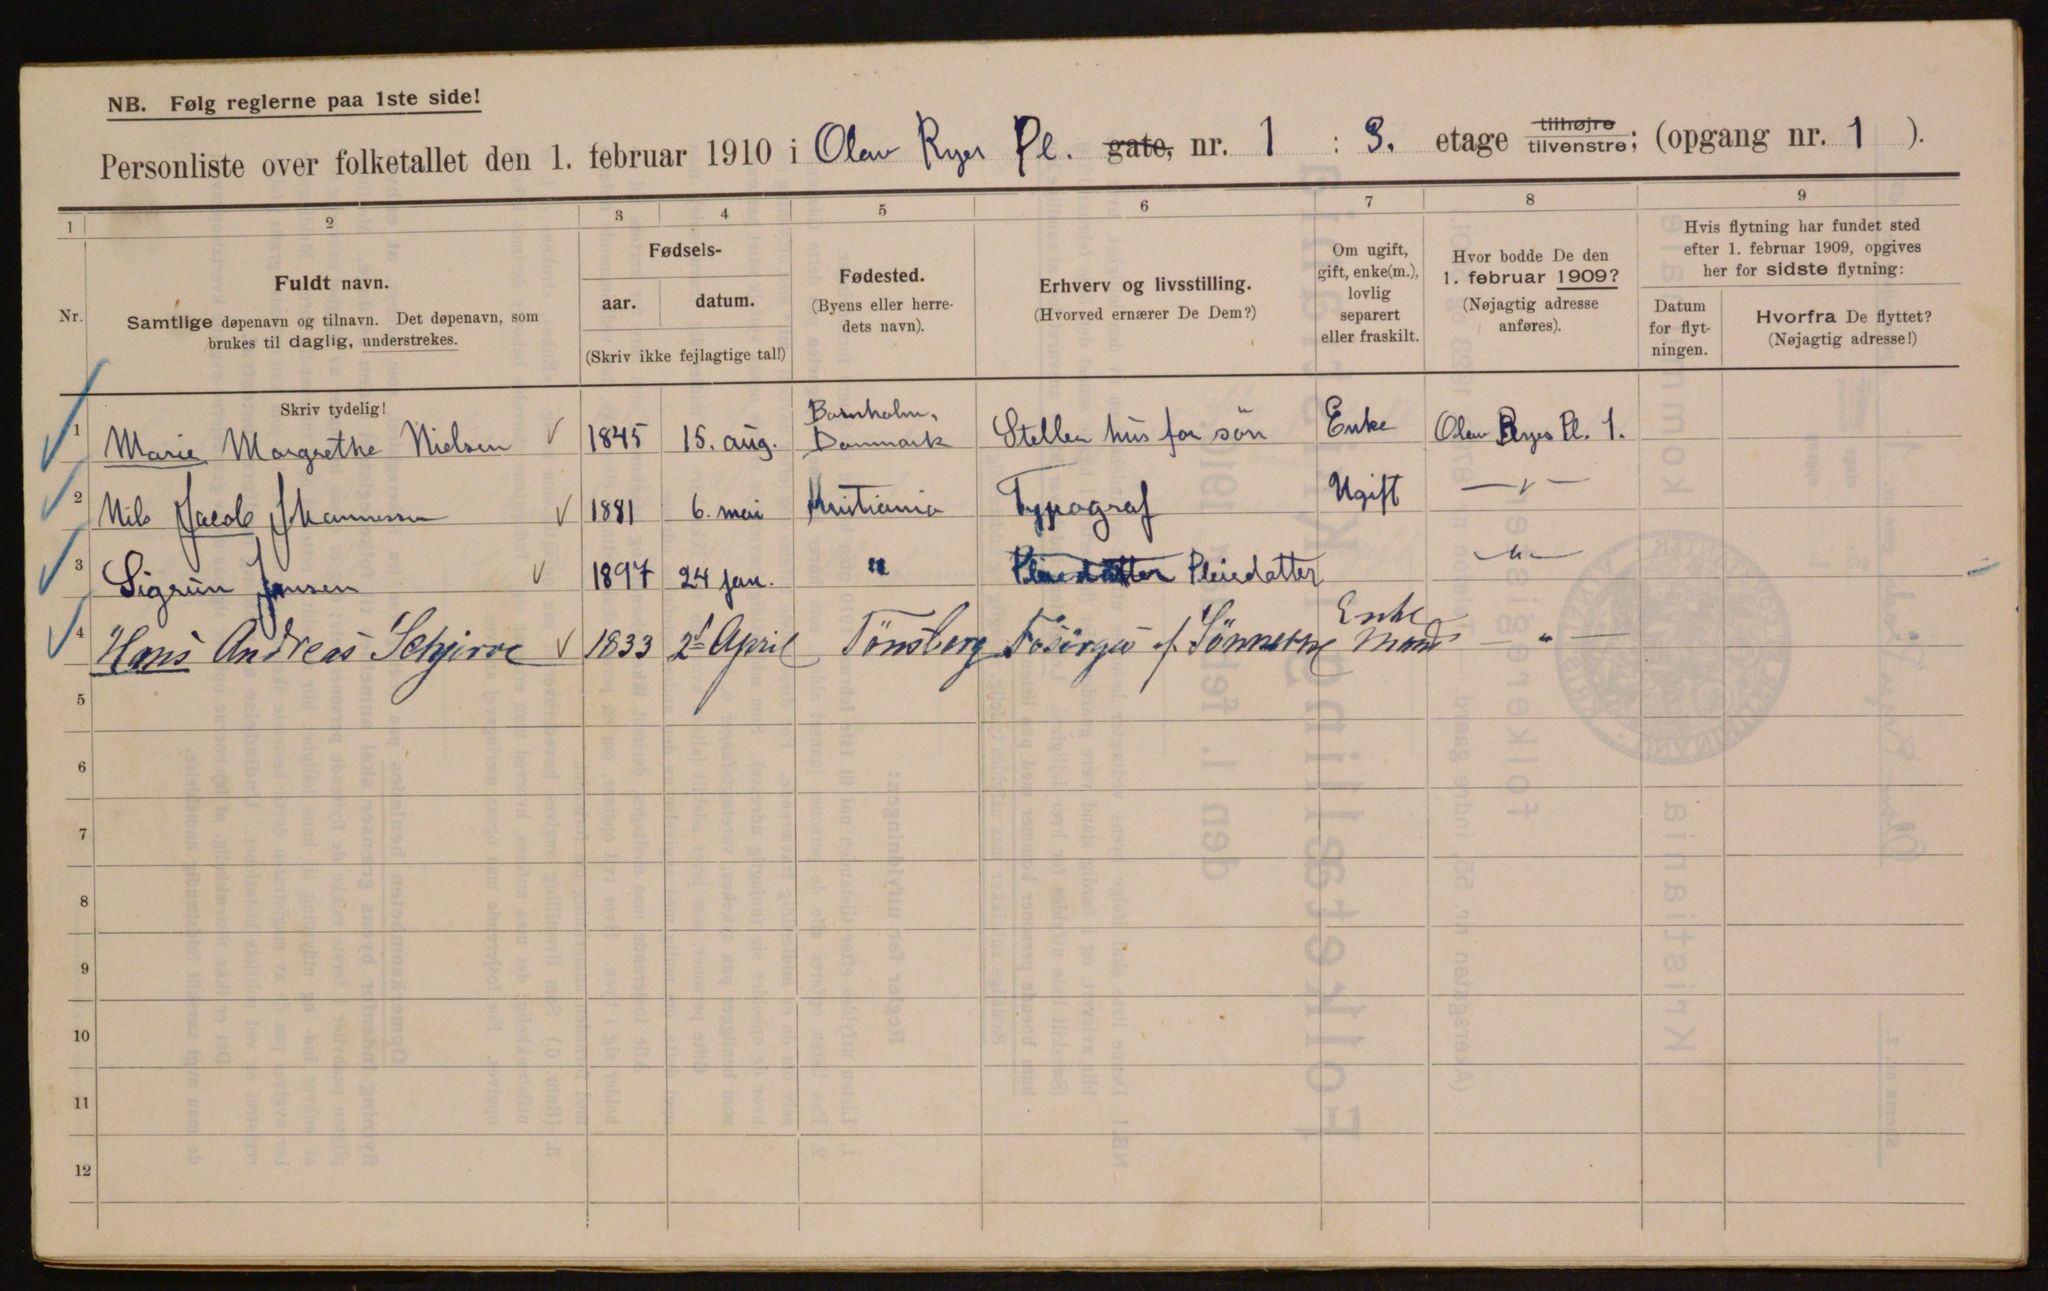 NB. Følg reglerne paa 1ste side!
Personliste over folketallet den 1. februar 1910 i Olav Ryes Pl. gate, nr. 1 : 3. etage tilhøjre tilvenstre; (opgang nr. 1 ).
1 2 3 4 5 6 7 8 9
Nr.
Fuldt navn.
Samtlige døpenavn og tilnavn. Det døpenavn, som
brukes til daglig, understrekes.
Fødsels-
aar. datum.
(Skriv ikke fejlagtige tal!)
Fødested.
(Byens eller herre-
dets navn).
Erhverv og livsstilling.
(Hvorved ernærer De Dem?)
Om ugift,
gift, enke(m.),
lovlig
separert
eller fraskilt.
Hvor bodde De den
1. februar 1909?
(Nøjagtig adresse
anføres).
Hvis flytning har fundet sted
efter 1. februar 1909, opgives
her for sidste flytning:
Datum
for flyt-
ningen.
Hvorfra De flyttet?
(Nøjagtig adresse!)
Skriv tydelig!
1 Marie Margrethe Nielsen 1845 15. aug. Bornholm, Danmark Steller hus for søn Enke Olav Ryes Pl. 1.
2 Nils Jacob Johannessen 1881 6. mai Kristiania Typograf Ugift — " —
3 Sigrun Jensen 1897 24 jan. " Pleiedatter Pleiedatter — " —
4 Hans Andreas 1833 2 April Tönsberg af Sönnerne Enke Mand — " —
5
6
7
8
9
10
11
12